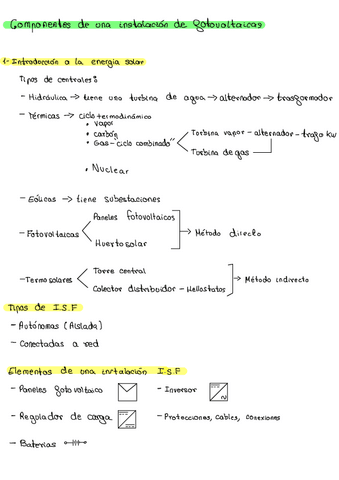 Componentes de una instalación de fotovoltaicas
1-Introducción a la energia solar
Tipos de centrales:
- Hidráulica → tiene una turbina de agua → alternador → transformador
- Térmicas → ciclo termodinámico
• vapor
• carbón
• Gas-"ciclo combinado"
Turbina vapor - alternador - trafo kW
Turbina de gas
• Nuclear
- Eólicas → tiene subestaciones
- Fotovoltaicas
Paneles fotovoltaicos
Huerto solar
→ Método directo
- Termosolares
Torre central
Colector distribuidor - Heliostatos
→ Método indirecto
Tipos de I.S.F
- Autónomas (Aislada)
- Conectadas a red
Elementos de una instalación I.S.F
- Paneles fotovoltaico
- Inversor
- Regulador de carga
- Protecciones, cables, conexiones
- Baterías